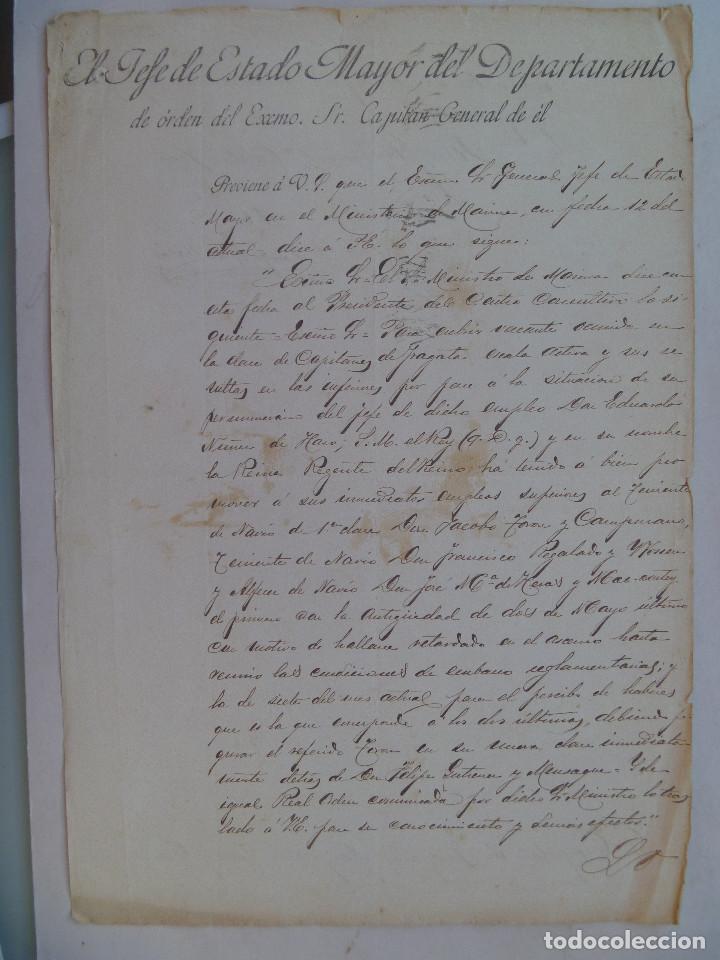 El Jefe de Estado Mayor del Departamento
de órden del Excmo. Sr. Capitán General de él
Previene á V. S. que el Excmo. Sr. General Jefe de Estado
Mayor en el Ministerio de Marina, en fecha 12 del
actual dice á S.E. lo que sigue:
"Excmo Sr = El Sr Ministro de Marina dice con
esta fecha al Presidente del Centro Consultivo lo si-
guiente = Excmo Sr = Para cubrir vacante ocurrida en
la clase de Capitanes de Fragata escala activa y sus re-
sultas en las inferiores por pase á la situacion de su-
pernumerario del jefe de dicho empleo Don Eduardo
Nuñez de Haro; S. M. el Rey (q. D. g.) y en su nombre
la Reina Regente del Reino, há tenido á bien pro-
mover á sus inmediatos empleos superiores al Teniente
de Navio de 1ª clase Don Jacobo Toron y Campuzano,
Teniente de Navio Don Francisco Regalado y
y Alferez de Navio Don José Mª de Heras y Mac-
el primero con la Antigüedad de dos de Mayo último
con motivo de hallarse retardado en el ascenso hasta
reunir las condiciones de embarco reglamentarias; y
la de siete del mes actual para el percibo de haberes
que es la que corresponde á los dos últimos, debiendo fi-
gurar el referido Toron en su nueva clase inmediata-
mente detras de Don Felipe Gutierrez y = Y de
igual Real Orden comunicada por dicho Sr Ministro lo tras-
lado á V.E. para su conocimiento y demás efectos."
Lo
todocoleccion
todocoleccion.net